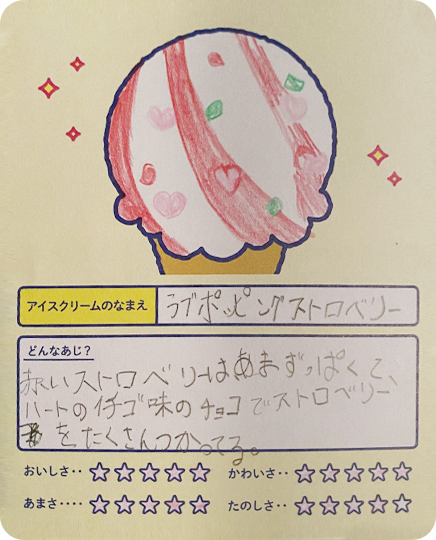 アイスクリームのなまえ
ラブポッピングストロベリー
どんなあじ?
赤いストロベリーはあまずっぱくて、
ハートのイチゴ味のチョコでストロベリー
をたくさんつかってる。
おいしさ‥ ☆☆☆☆☆ かわいさ‥ ☆☆☆☆☆
あまさ‥‥ ☆☆☆☆☆ たのしさ‥ ☆☆☆☆☆